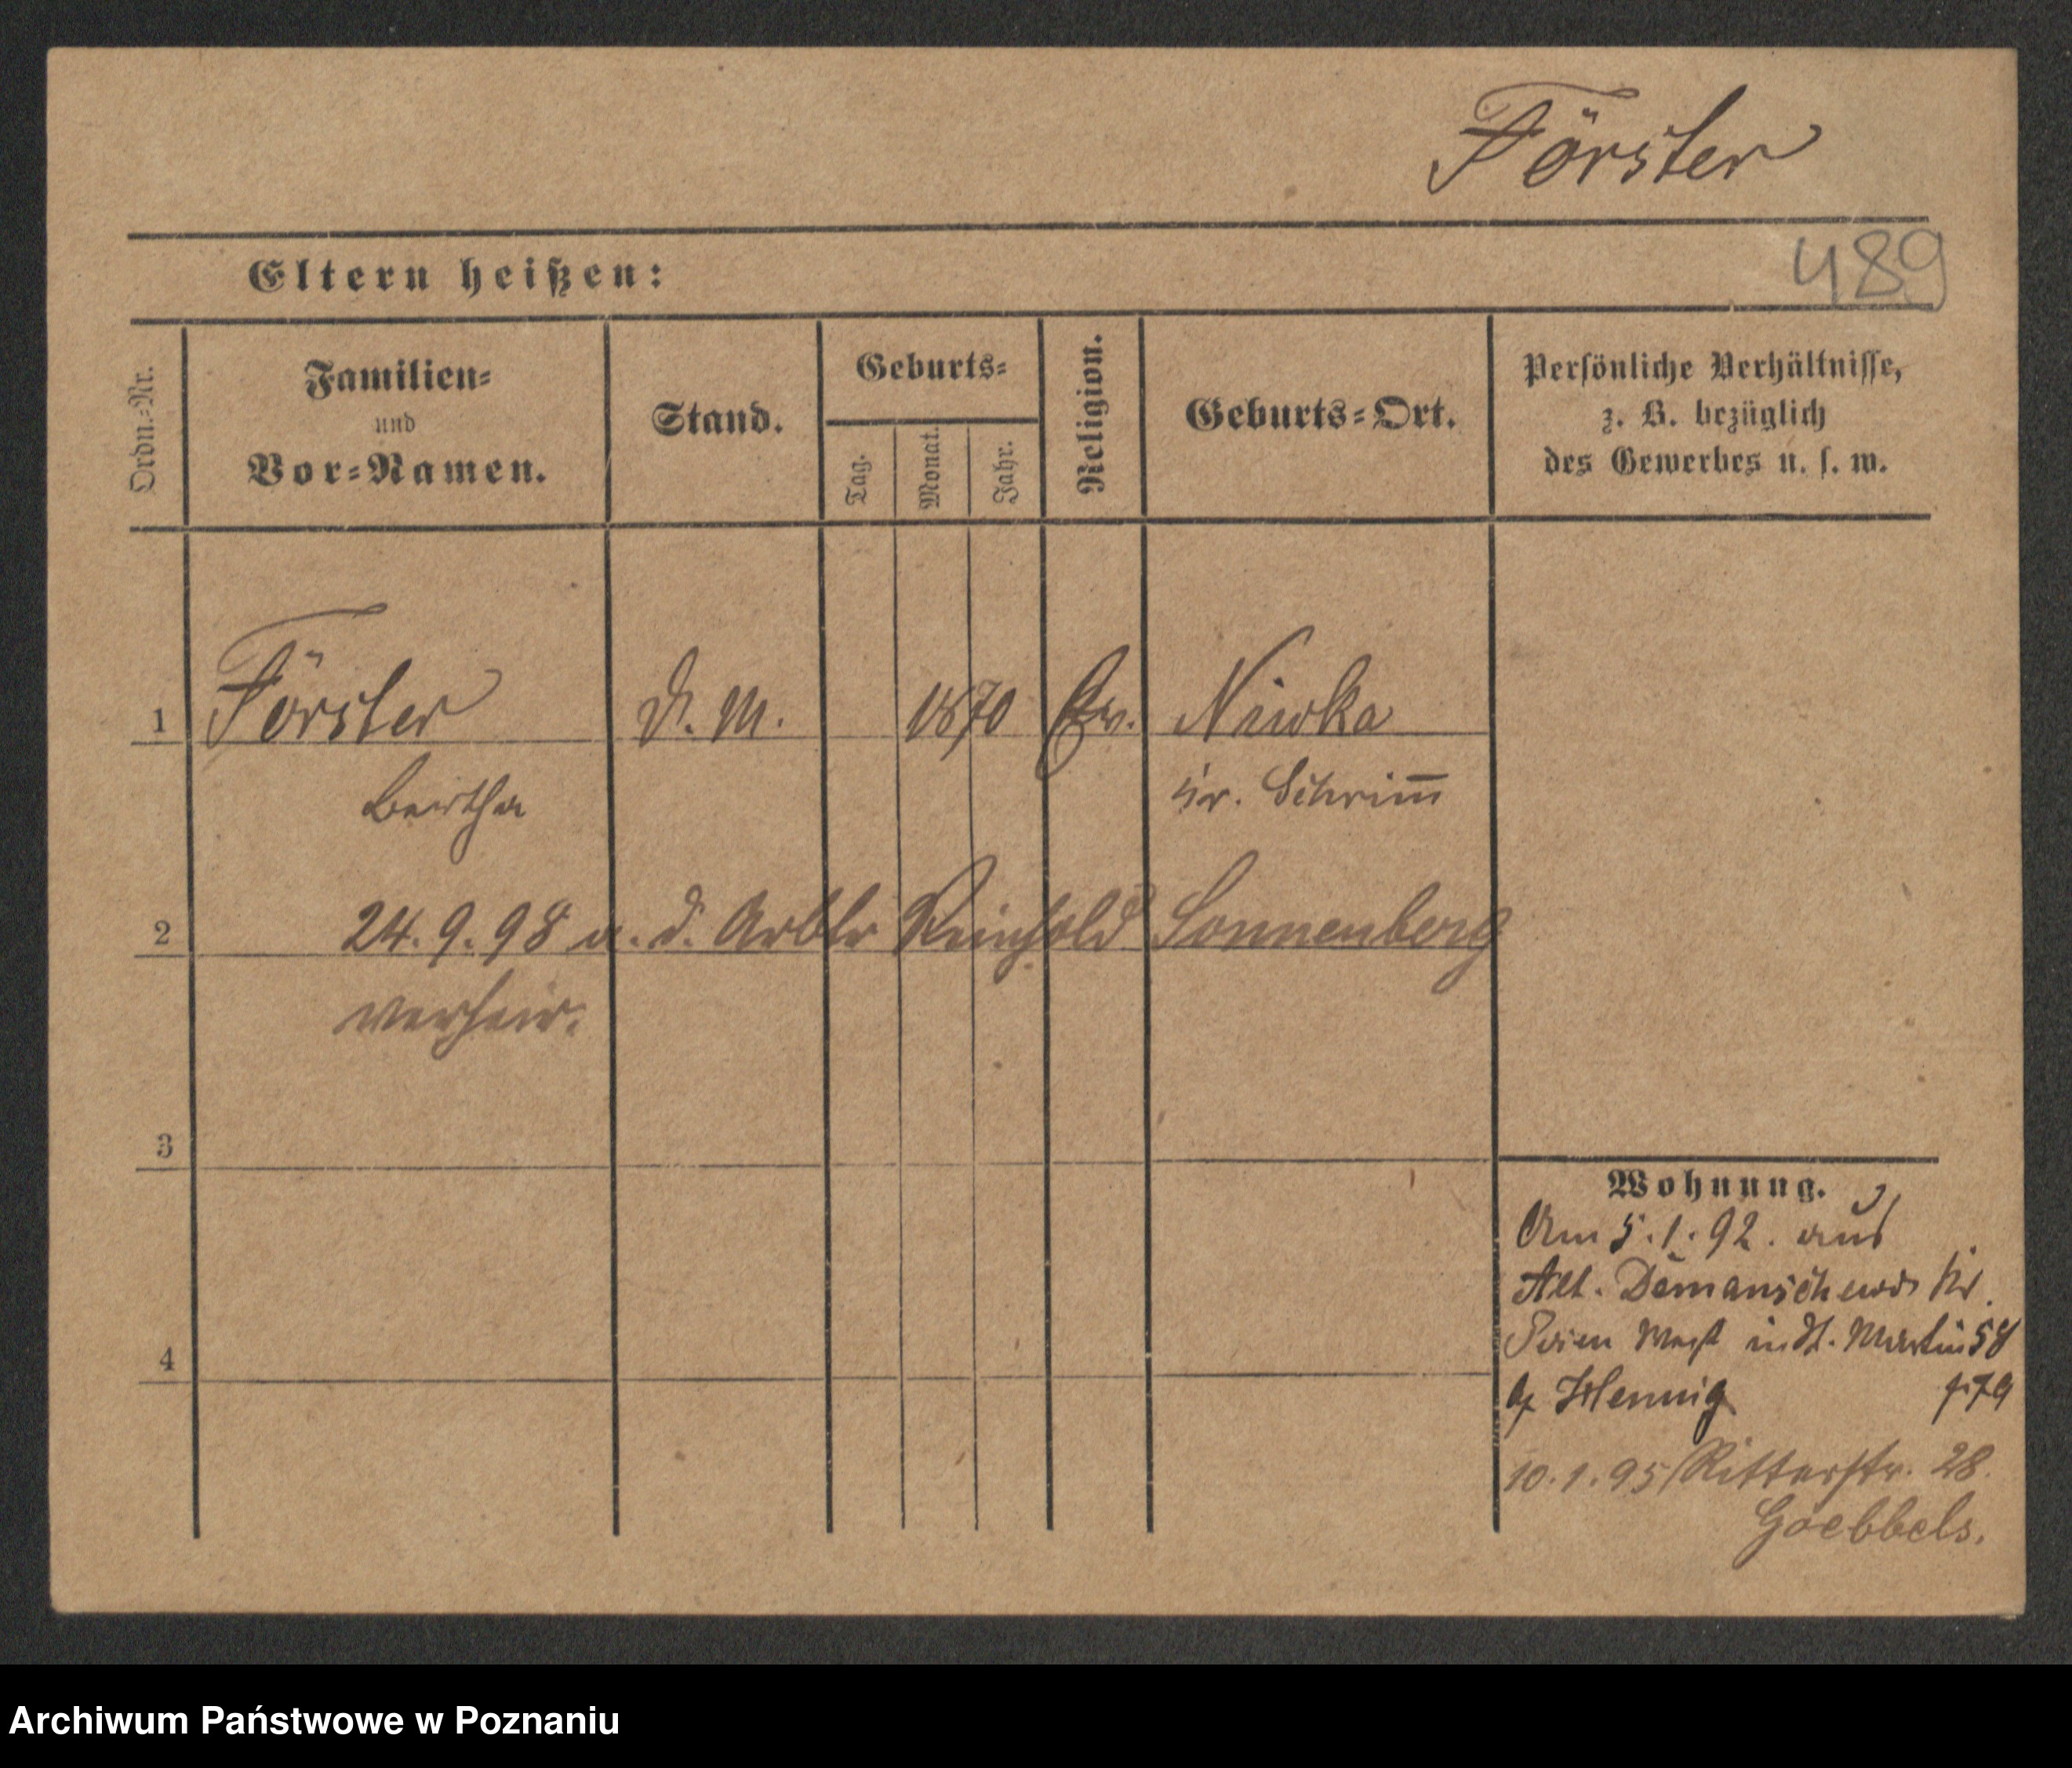 Förster
489
Eltern heißen:
Ordn.-Nr.
Familien-
und
Vor-Namen.
Stand.
Geburts-
Tag.
Monat.
Jahr.
Religion.
Geburts-Ort.
Persönliche Verhältnisse,
z. B. bezüglich
des Gewerbes u. s. w.
1 Förster D. M. 1870 Ev. Niwka
Bertha Kr. Schrim̅
2 24.9.98 m. d. Arbtr Reinhold Sonnenberg
verheir.
3
4
Wohnung.
Am 5.1.92. aus
Alt. Kr.
Posen West in St. Martin 58
Hennig
10.1.95 Ritterstr. 28.
Goebbels.
Archiwum Państwowe w Poznaniu